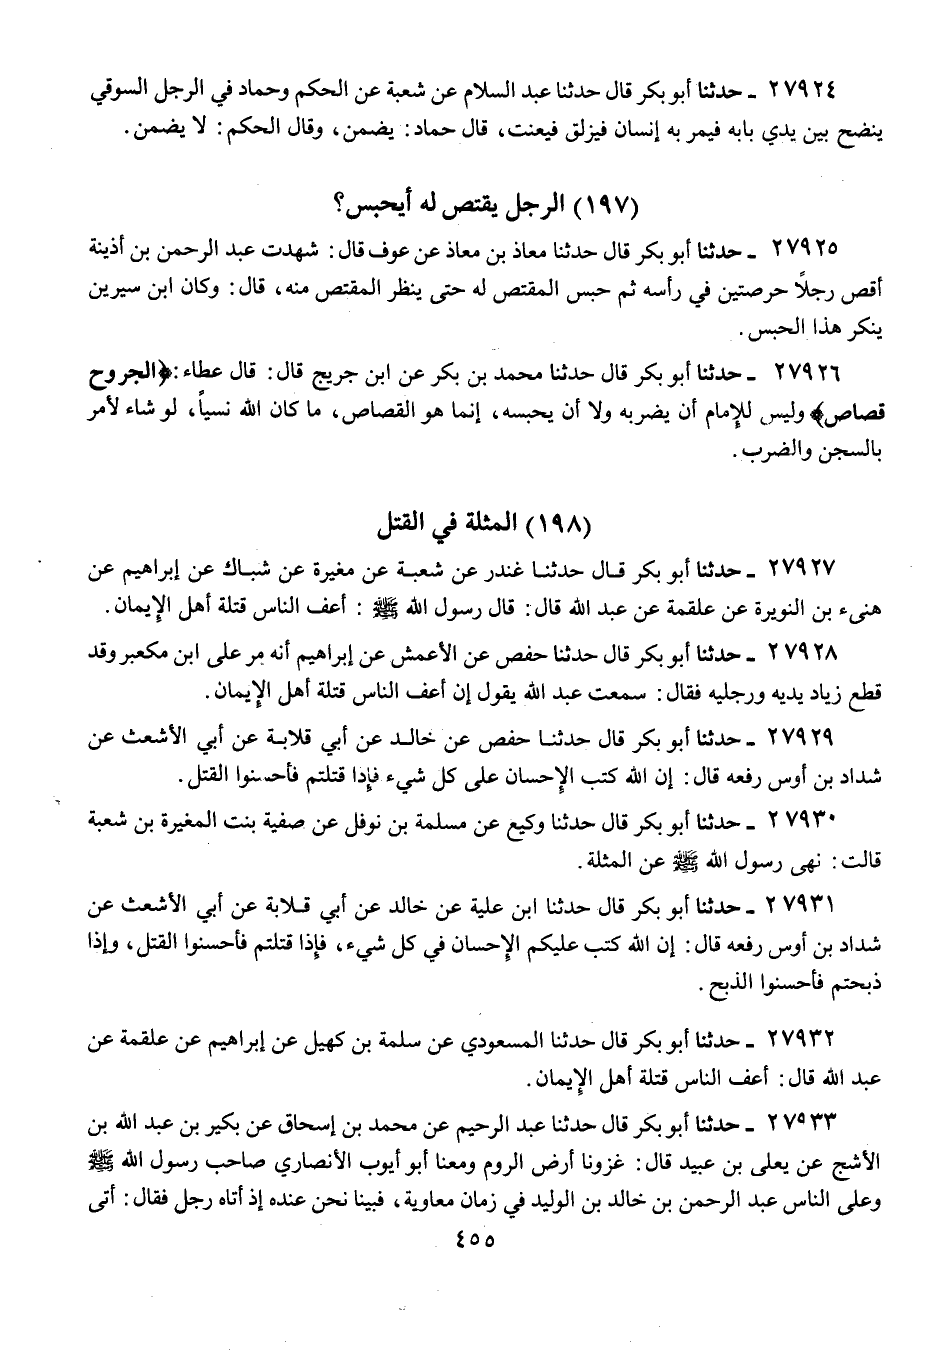 ٢٧٩٢٤ ـ حدثنا أبو بكر قال حدثنا عبد السلام عن شعبة عن الحكم وحماد في الرجل السوقي
ينضح بين يدي بابه فيمر به إنسان فيزلق فيعنت، قال حماد: يضمن، وقال الحكم: لا يضمن.
(١٩٧) الرجل يقتص له أيحبس؟
٢٧٩٢٥ ـ حدثنا أبو بكر قال حدثنا معاذ بن معاذ عن عوف قال: شهدت عبد الرحمن بن أذينة
أقص رجلاً حرصتين في رأسه ثم حبس المقتص له حتى ينظر المقتص منه، قال: وكان ابن سيرين
ينكر هذا الحبس.
٢٧٩٢٦ ـ حدثنا أبو بكر قال حدثنا محمد بن بكر عن ابن جريج قال: قال عطاء: ﴿الجروح
قصاص﴾ وليس للإمام أن يضربه ولا أن يحبسه، إنما هو القصاص، ما كان الله نسياً، لو شاء لأمر
بالسجن والضرب.
(١٩٨) المثلة في القتل
٢٧٩٢٧ ـ حدثنا أبو بكر قال حدثنا غندر عن شعبة عن مغيرة عن شباك عن إبراهيم عن
هنيء بن النويرة عن علقمة عن عبد الله قال: قال رسول الله ﷺ : أعف الناس قتلة أهل الإيمان.
٢٧٩٢٨ ـ حدثنا أبو بكر قال حدثنا حفص عن الأعمش عن إبراهيم أنه مر على ابن مكعبر وقد
قطع زياد يديه ورجليه فقال: سمعت عبد الله يقول إن أعف الناس قتلة أهل الإيمان.
٢٧٩٢٩ ـ حدثنا أبو بكر قال حدثنا حفص عن خالد عن أبي قلابة عن أبي الأشعث عن
شداد بن أوس رفعه قال: إن الله كتب الإحسان على كل شيء فإذا قتلتم فأحسنوا القتل.
٢٧٩٣٠ ـ حدثنا أبو بكر قال حدثنا وكيع عن مسلمة بن نوفل عن صفية بنت المغيرة بن شعبة
قالت: نهى رسول الله ﷺ عن المثلة.
٢٧٩٣١ ـ حدثنا أبو بكر قال حدثنا ابن علية عن خالد عن أبي قلابة عن أبي الأشعث عن
شداد بن أوس رفعه قال: إن الله كتب عليكم الإحسان في كل شيء، فإذا قتلتم فأحسنوا القتل، وإذا
ذبحتم فأحسنوا الذبح.
٢٧٩٣٢ ـ حدثنا أبو بكر قال حدثنا المسعودي عن سلمة بن كهيل عن إبراهيم عن علقمة عن
عبد الله قال: أعف الناس قتلة أهل الإيمان.
٢٧٩٣٣ ـ حدثنا أبو بكر قال حدثنا عبد الرحيم عن محمد بن إسحاق عن بكير بن عبد الله بن
الأشج عن يعلى بن عبيد قال: غزونا أرض الروم ومعنا أبو أيوب الأنصاري صاحب رسول الله ﷺ
وعلى الناس عبد الرحمن بن خالد بن الوليد في زمان معاوية، فبينا نحن عنده إذ أتاه رجل فقال: أتى
٤٥٥